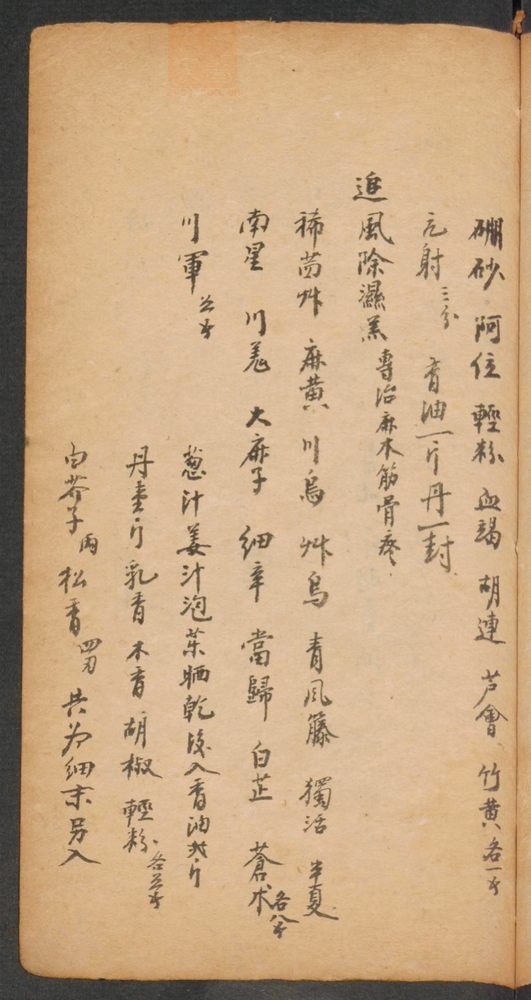 硼砂 阿位 輕粉 血竭 胡連 芦會 竹黄 各一钱
元射 三分 香油一斤 丹一封
追風除濕羔 專治麻木筋骨疼
稀茼艸 麻黄 川烏 艸烏 青风籐 獨活 半夏
南星 川羌 大麻子 細辛 當歸 白芷 蒼术 各八钱
川軍
葱汁姜汁泡藥晒乾後入香油 斤
丹壹斤 乳香 木香 胡椒 輕粉 各 钱
白芥子 松香 四刃 共为細末另入